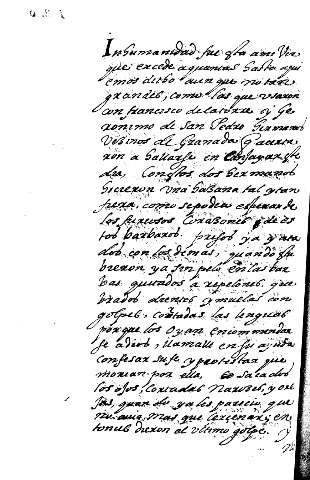 Inhumanidad fue esta a mi Ver
que excede a quantas hasta aqui
emos dicho aunque no tan
grandes, como las que usaron
con francisco de la torre y Ge
ronimo de San Pedro hermanos
Vesinos de Granada q acerta
ron a hallarse en
dia, Con estos dos hermanos
hicieron una hasaña tal y tan
fiera, como se podia esperar de
los furiosos Corasones de es
tos barbaros. presos ya y ata
dos con los demas, quando estu
bieron ya sin pelo en las bar
vas quitados a repelones, que
brados dientes y muelas con
golpes, cortadas las lenguas
porque los Oyan encomendar
se a dios, llamalle en su ayuda
confesar su fe, y protestar que
morian por ella, sacados
los ojos, Cortadas Narises, y ore
jas, quando ya les parecio que
no avia mas que hacer en
tonces dieron el ultimo golpe. y